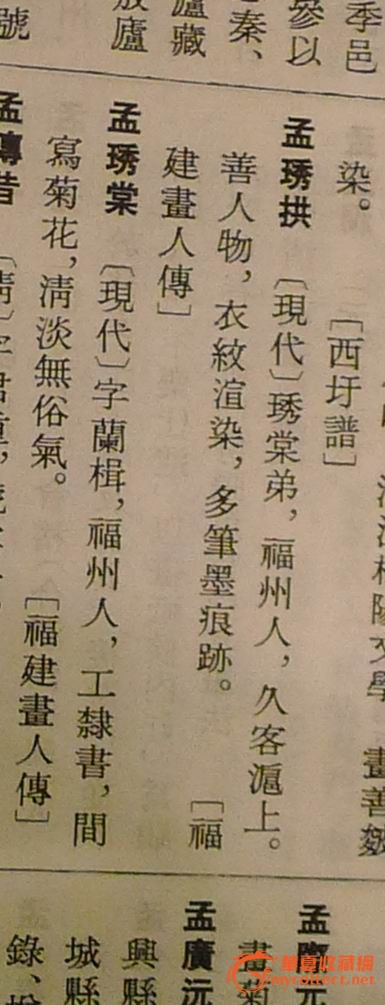 季邑
參以
秦、
廬藏
號
畫善皴
染。 〔西圩譜〕
孟琇拱 〔現代〕琇棠弟，福州人，久客滬上。
善人物，衣紋渲染，多筆墨痕跡。 〔福
建畫人傳〕
孟琇棠 〔現代〕字蘭楫，福州人，工隸書，間
寫菊花，淸淡無俗氣。 〔福建畫人傳〕
孟傳昔 〔淸〕字
孟
畫菊
孟廣沅
興縣
城縣
錄、
華夏收藏網
mycollect.com